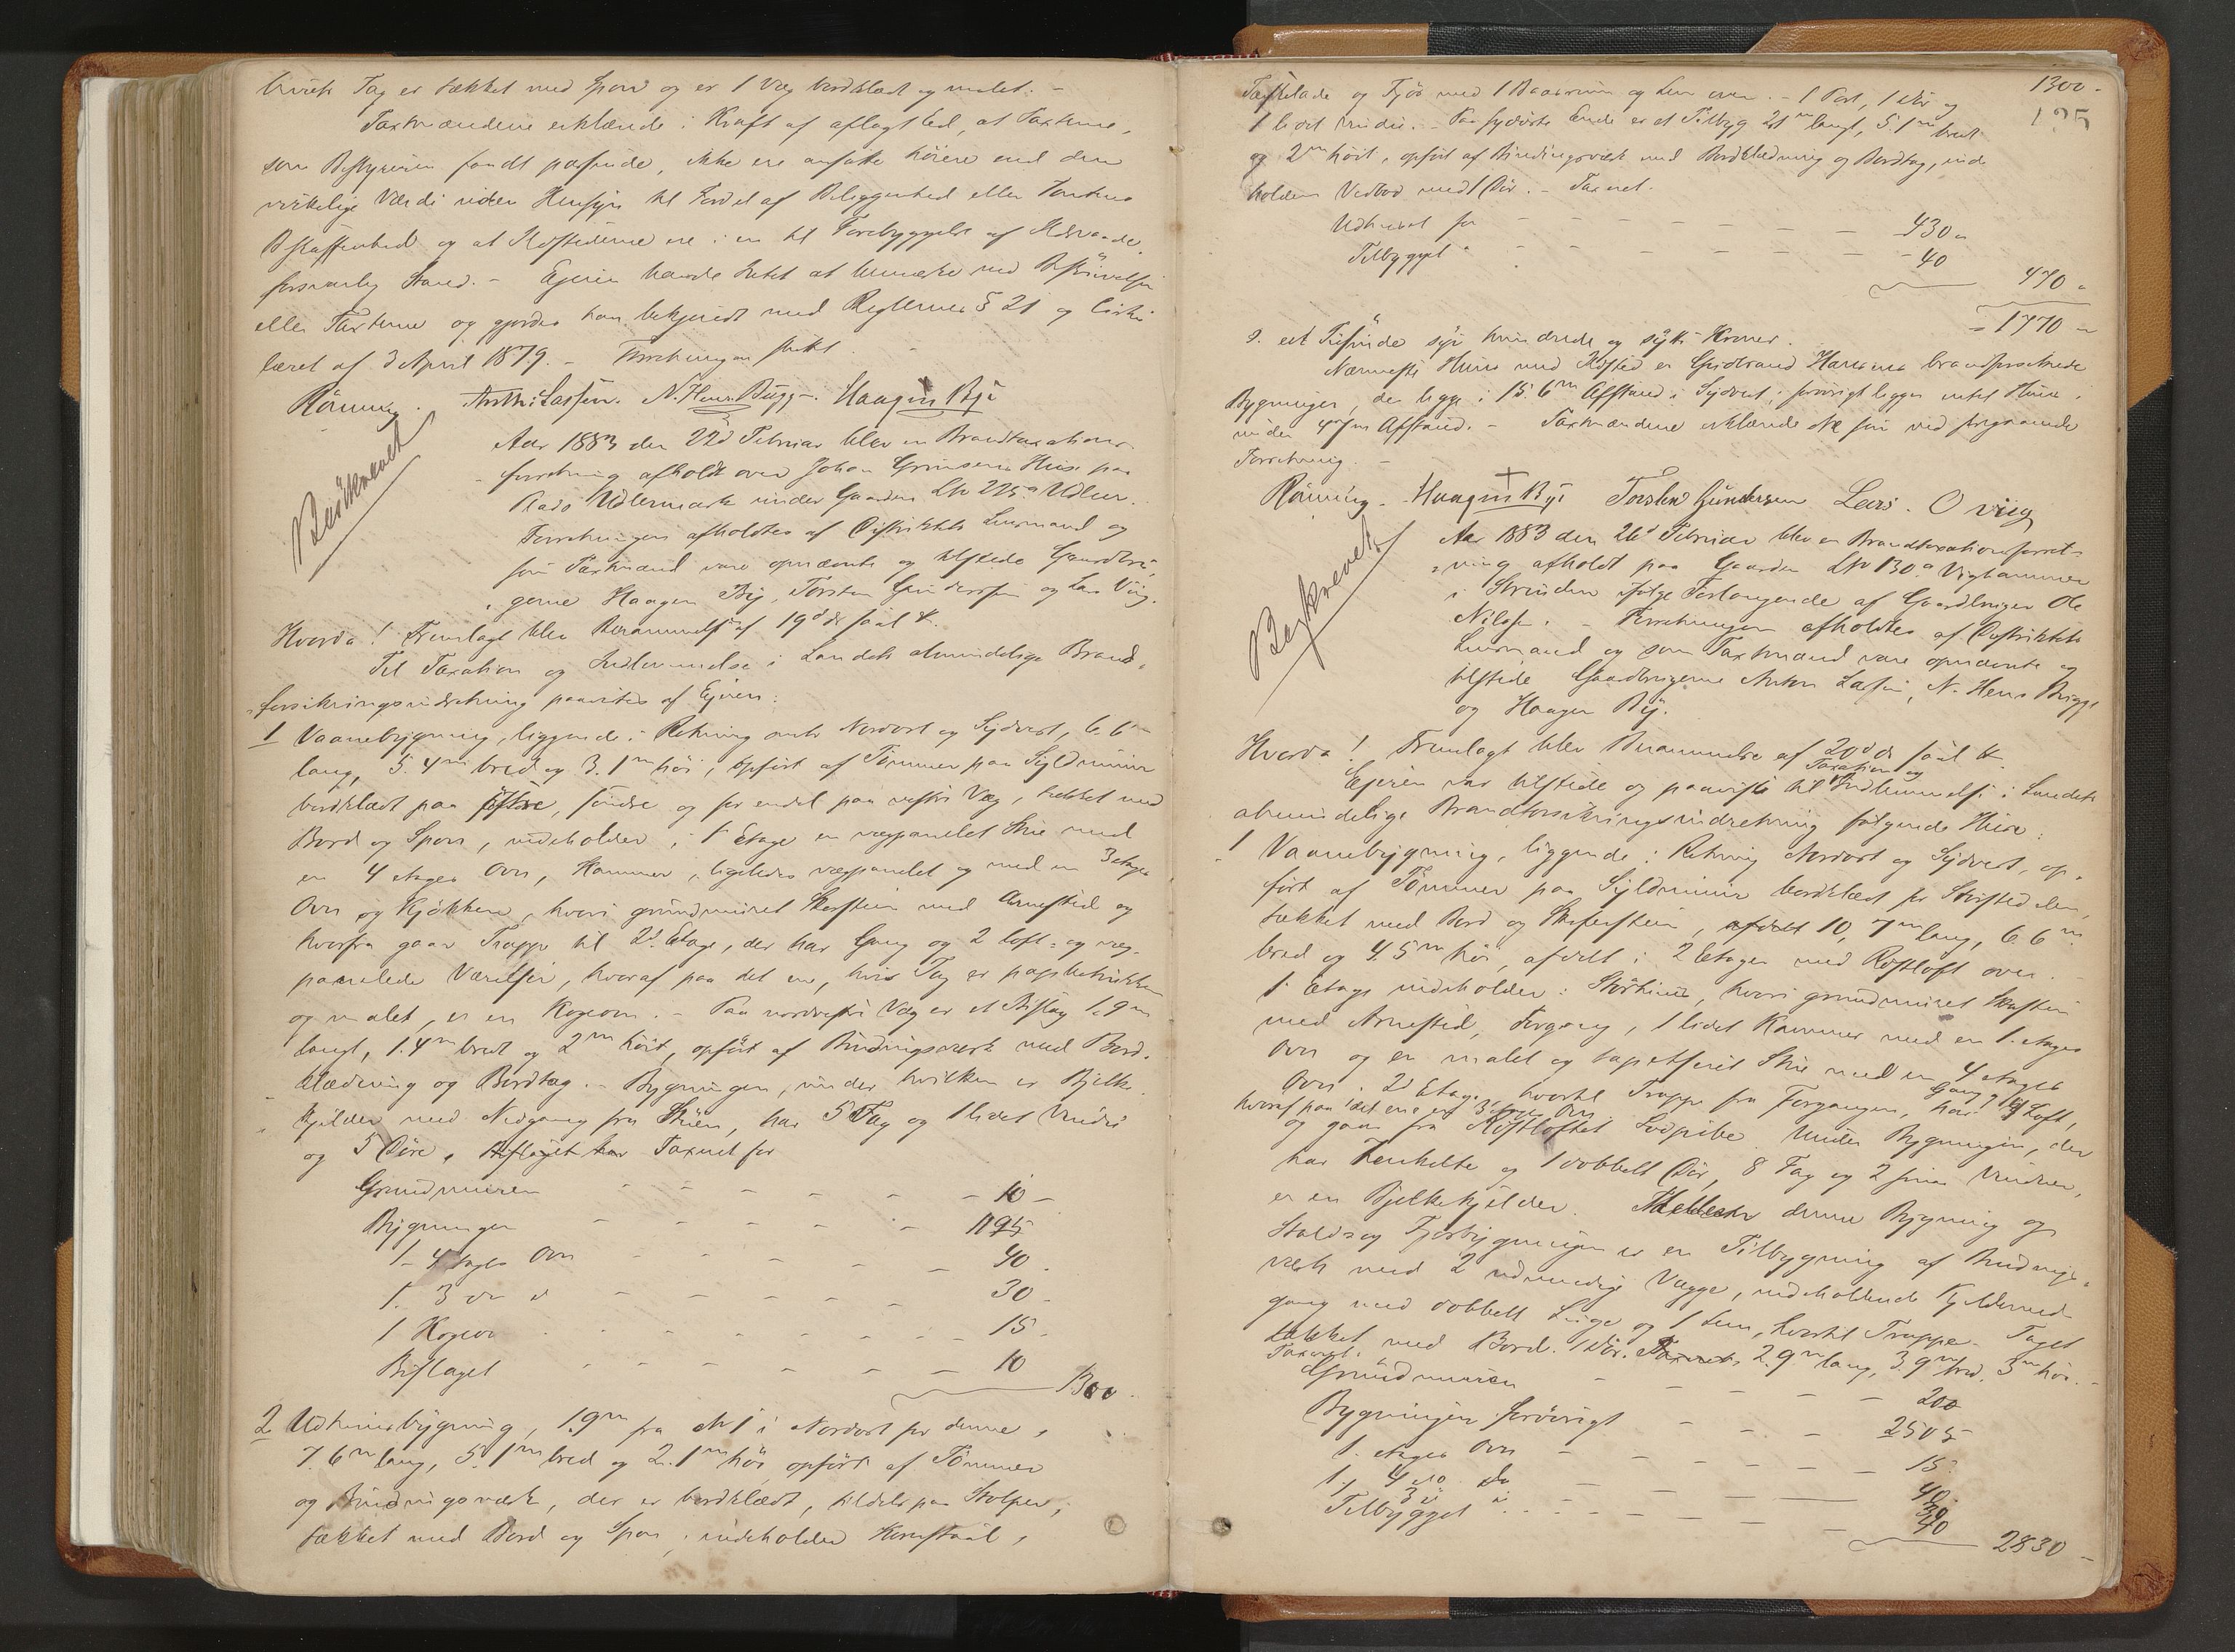 Tag er tækket med Spon og er 1 Væg bordklædt og malet. -
Taxtmændene erklærede i Kraft af aflagt Ed, at Taxterne,
som Bestyreren fandt passende, ikke ere ansatte høiere end den
virkelige Værdi uden Hensyn til Fordel af Beliggenhed eller Tomtens
Beskaffenhed og at Ildstederne ere i en til Forebyggelse af Ildsvaade
forsvarlig Stand. - Ejeren havde Intet at bemærke ved Beskrivelsen
eller Taxterne og gjordes han bekjendt med Reglernes § 21 og Cirku
læret af 3 April 1879. - Forretningen sluttet.
Rönning. Anth: Lassen. N. Hens. Bügge. Haagen Bye
Beskrevet
Aar 1883 den 22d Februar blev en Brandtaxations-
forretning afholdt over Johan Huse paa
Plads Udlermark under Gaarden LN 225a Udleer.
Forretningen afholdtes af Distriktets Lensmand og
som Taxtmænd vare opnævnte og tilstede Gaardbru-
gerne Haagen By, Torsten Gundersen og Lars Viig.
Hvorda! Fremlagt blev Berammelse af 19d ds saal &.
Til Taxation og Indlemmelse i Landets almindelige Brand-
forsikringsindretning paavistes af Ejeren:
1 Vaanebygning, liggende i Retning omtr Nordost og Sydvest, 6.6m
lang, 5.4m bred og 3.1m höi, opført af Tömmer paa Syldmuur
bordklædt paa östre, söndre og for endel paa vestre Væg, tækket med
Bord og Spon, indeholder i 1 Etage en vægpanelet Stue med
en 4 etages Ovn, Kammer, ligeledes vægpanelet og med en 3 etages
Ovn og Kjökken, hvori grundmuret Skorsten med Arnested og
hvorfra gaar Trappe til 2d Etage, der har Gang og 2 loft- og væg-
panelede Værelser, hvoraf paa det ene, hvis Tag er papirbetrukken
og malet, er en Kogeovn. - Paa nordvestre Væg er et Bislag 1.9m
langt, 1.4m bredt og 2m höit, opført af Bindingsværk med Bord-
klædning og Bordtag. - Bygningen, under hvilken er Bjelke-
kjelder med Nedgang fra Stuen, har 5 Fag og 1 lidet Vindu
og 5 Döre. Taxeret for
Grundmuren - - - - - - 10 -
Bygningen - - - - - 1195
1 - 4 etages Ovn - - - - - 40
1. 3 do d - - - - - 30 -
1 Kogeovn - - - - - - 15 -
Bislaget - - - - - - 10
1300
2 Udhuusbygning, 1.9m fra N 1 i Nordost for denne,
7.6m lang, 5.1m bred og 2.1m höi, opført af Tömmer
og Bindingsværk, der er bordklædt, tildels paa Stolper,
tækket med Bord og Spon, indeholder Kornstaal,
1300 -
135
Tærskelade og Fjös med 1 Baasrum og Lem over. - 1 Port, 1 Dör og
1 lidet Vindu. - Paa sydöstre Ende er et Tilbyg 2.1m langt, 5.1m bredt
og 2m höit, opført af Bindingsværk med Bordklædning og Bordtag, inde
holdende Vedbod med 1 Dör. - Taxeret.
Udhuset for - - - - - - 430 "
Tilbygget " - - - - - - 40
470 "
= 1770 "
D. e et Tusinde syv hundrede og sytti Kroner.
Nærmeste Huus med Ildsted er Gudbrand Hansens brandforsikrede
Bygninger, der ligge i 15.6m Afstand i Sydvest; forövrigt ligger intet Huus
under Afstand. - Taxtmændene erklærede sig som ved foregaaende
Forretning.
Rönning. Haagen Bye Torsten Gundersen Lars. O viig
Beskrevet
Aar 1883 den 26d Februar blev en Brandtaxationsforret-
ning afholdt paa Gaarden LN 130a Vighammer
i Strinden ifölge Forlangende af Gaardbruger Ole
Nilsen. - Forretningen afholdtes af Distriktets
Lensmand og som Taxtmænd vare opnævnte og
tilstede Gaardbrugerne Anton Lassen, N. Hens Bugge
og Haagen By.
Hvorda! Fremlagt blev Berammelse af 20d ds saal &.
Ejeren var tilstede og paaviste til Taxation og Indlemmelse i Landets
almindelige Brandforsikringsindretning følgende Huse:
1 Vaanebygning, liggende i Retning Nordost og Sydvest, op-
fört af Tömmer paa Syldmuur bordklædt for Störstedelen,
tækket med Bord og Skifersteen, 10,7m lang, 6.6m
bred og 4.5m höi, afdelt i 2 Etager med Röstloft over.
1 Etage indeholder: Störhuus, hvori grundmuret Skorsten
med Arnested, Forgang, 1 lidet Kammer med en 1. etages
Ovn og en malet og tapetseret Stue med en 4 etages
Ovn. 2d Etage, hvortil Trappe fra Forgangen, har Gang og Loft,
hvoraf paa det ene er 3 etages Ovn
og gaar fra Röstloftet Lodpibe. Under Bygningen, der
har enkelte og 1 dobbelt Dör, 8 Fag og 2 smaa Vinduer,
er en Bjelkekjelder. Mellem denne Bygning og
Stald- og Fjösbygningen er en Tilbygning af Bindings-
værk med 2 udvendige Vægge, indeholdende Kjeldernedgang
gang med dobbelt Luge og 1 Lem, hvortil Trappe. Taget
tækket med Bord. 1 Dör. 2.9m lang, 3.9m bred, 3m höi. -
Taxeret.
Grundmuren - - - - - 200
Bygningen forövrigt - - - - 2505
1. etages Ovn - - - - - - 15
1 4 do do - - - - 40.
3 d d 30
Tilbygget - - - - - - 40
2830 -